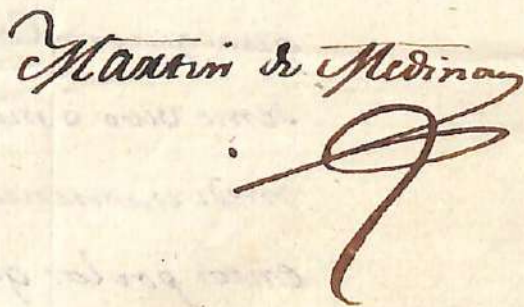 Martin de Medina